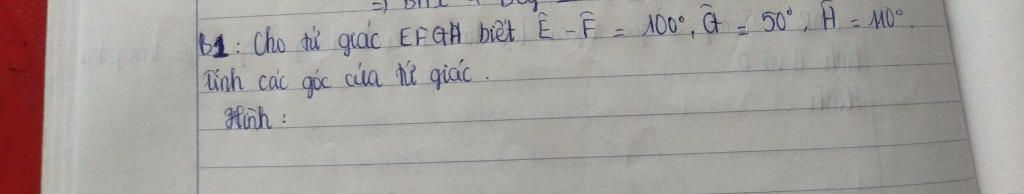 B1: Cho tứ giác EFGH biết Ê - F̂ = 100°, Ĝ = 50°, Ĥ = 110°.
Tính các góc của tứ giác.
Hình: